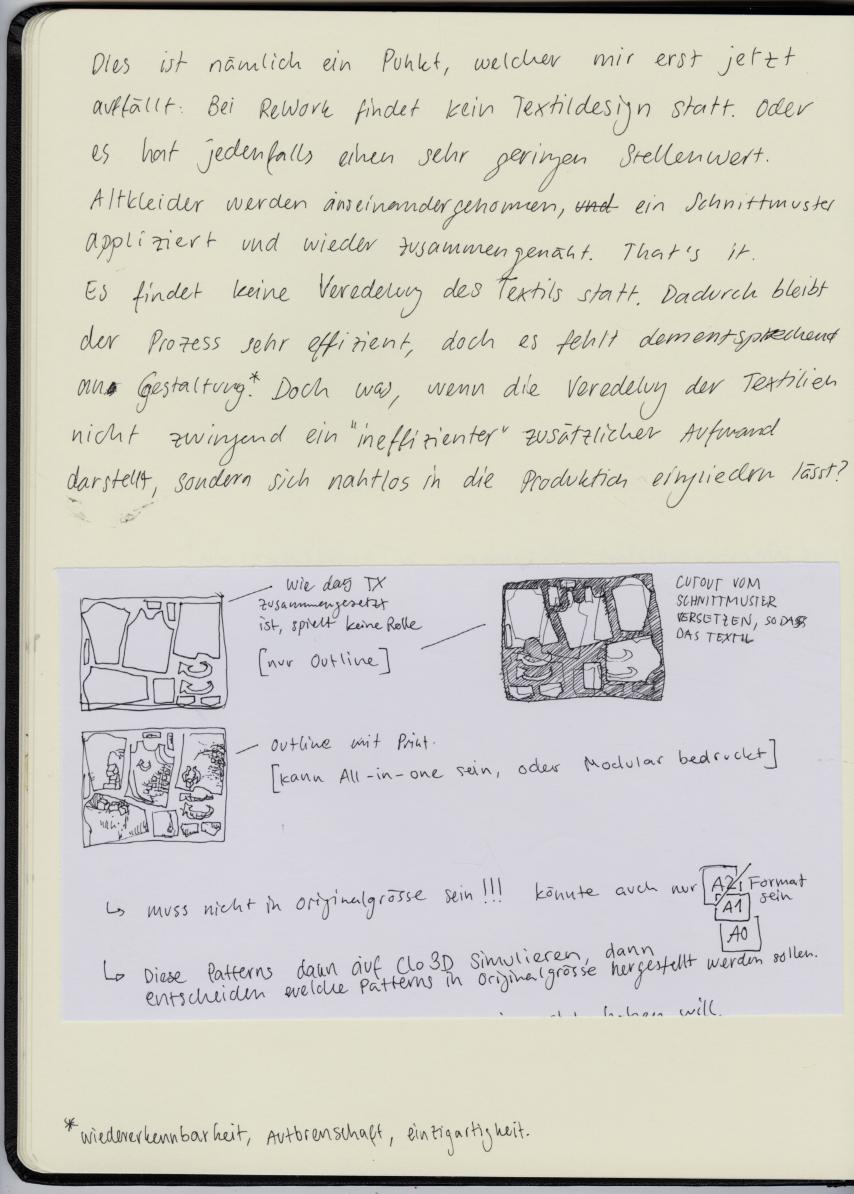 Dies ist nämlich ein Punkt, welcher mir erst jetzt
auffällt: Bei ReWork findet kein Textildesign statt. Oder
es hat jedenfalls einen sehr geringen Stellenwert.
Altkleider werden auseinandergenommen, und ein Schnittmuster
appliziert und wieder zusammengenäht. That's it.
Es findet keine Veredelung des Textils statt. Dadurch bleibt
der Prozess sehr effizient, doch es fehlt dementsprechend
an Gestaltung.* Doch was, wenn die Veredelung der Textilien
nicht zwingend ein "ineffizienter" zusätzlicher Aufwand
darstellt, sondern sich nahtlos in die Produktion eingliedern lässt?
wie das TX
zusammengesetzt
ist, spielt keine Rolle
[nur Outline]
CUTOUT VOM
SCHNITTMUSTER
VERSETZEN, SODASS
DAS TEXTIL
Outline mit Print.
[kann All-in-one sein, oder Modular bedruckt]
↳ muss nicht in Originalgrösse sein!!! könnte auch nur A2, Format
sein
A1
A0
↳ Diese Patterns dann auf Clo3D Simulieren, dann
entscheiden welche Patterns in Originalgrösse hergestellt werden sollen.
haben will.
*wiedererkennbarkeit, Autorenschaft, einzigartigkeit.